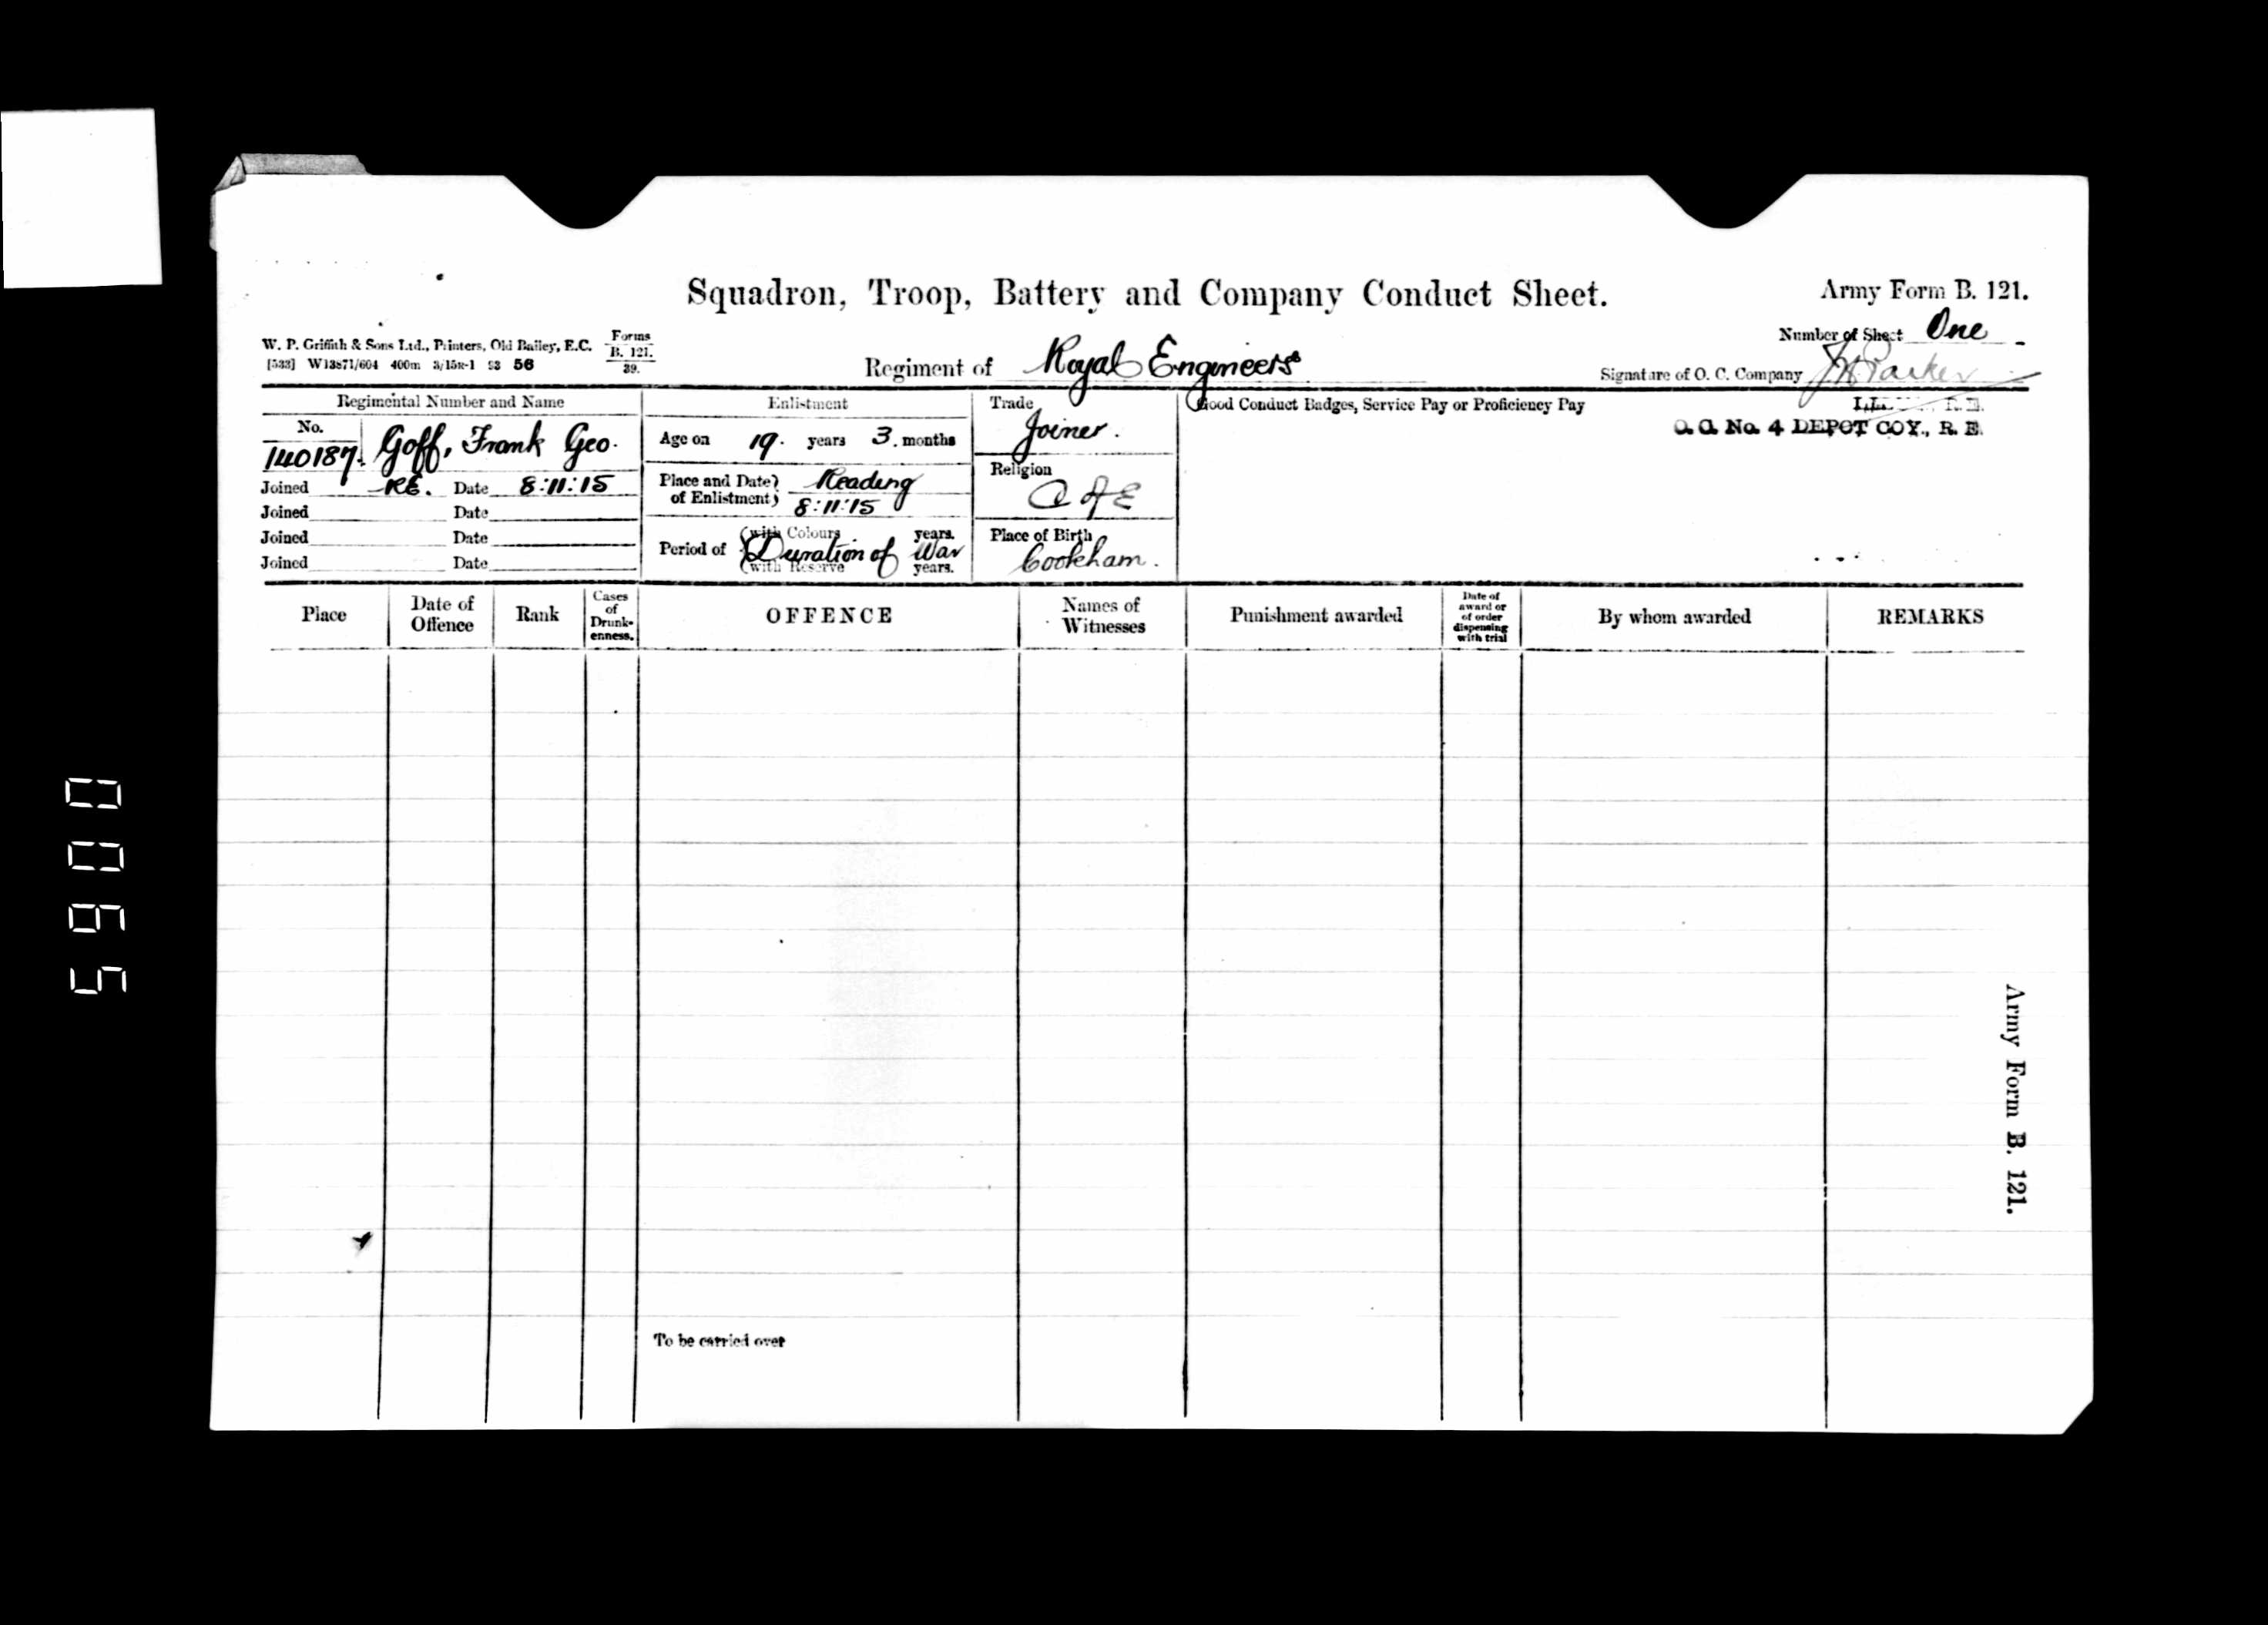 Squadron, Troop, Battery and Company Conduct Sheet.
Army Form B. 121.
Number of Sheet One
W. P. Griffith & Sons Ltd., Printers, Old Bailey, E.C.
Forms
B. 121.
39.
[533] W13871/604 400m 3/15 93 56
Regiment of Royal Engineers
Signature of O. C. Company Parker
O. C. No. 4 DEPOT COY., R. E.
Regimental Number and Name
No.
140187. Goff, Frank Geo.
Joined R.E. Date 8:11:15
Joined Date
Joined Date
Joined Date
Enlistment
Age on 19. years 3. months
Place and Date of Enlistment Reading
8:11:15
with Colours years.
Period of Duration of War
with Reserve years.
Trade
Joiner.
Religion
C of E
Place of Birth
Cookham.
Good Conduct Badges, Service Pay or Proficiency Pay
Place
Date of Offence
Rank
Cases of Drunkenness.
OFFENCE
Names of Witnesses
Punishment awarded
Date of award or of order dispensing with trial
By whom awarded
REMARKS
To be carried over
Army Form B. 121.